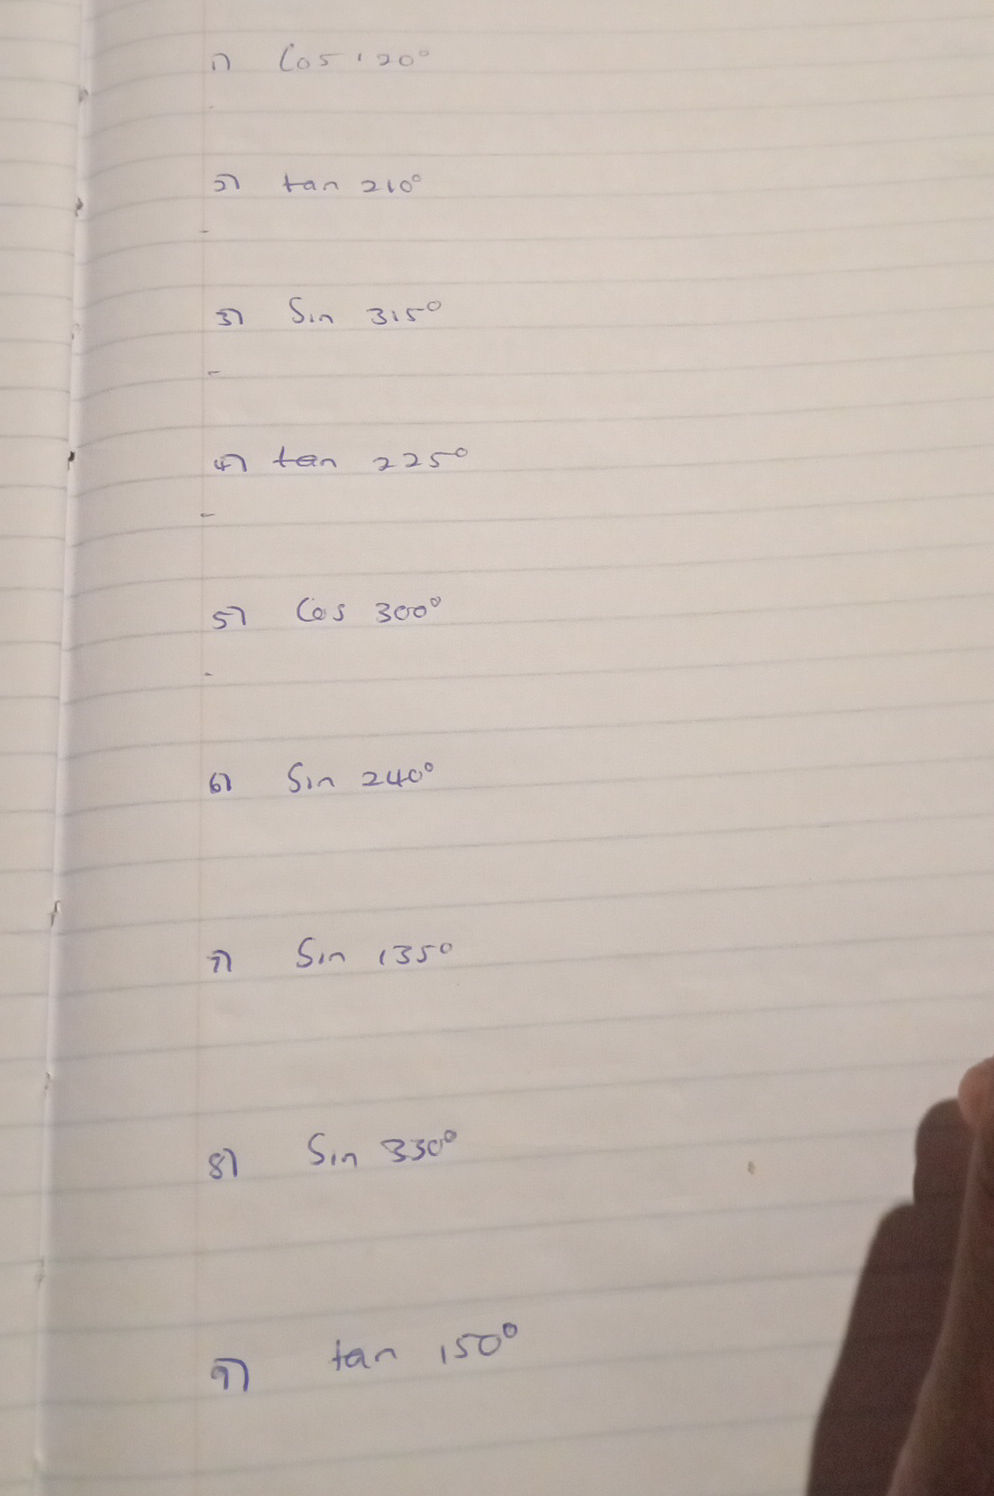 1) Cos 120°
2) tan 210°
3) Sin 315°
4) tan 225°
5) Cos 300°
6) Sin 240°
7) Sin 135°
8) Sin 330°
9) tan 150°